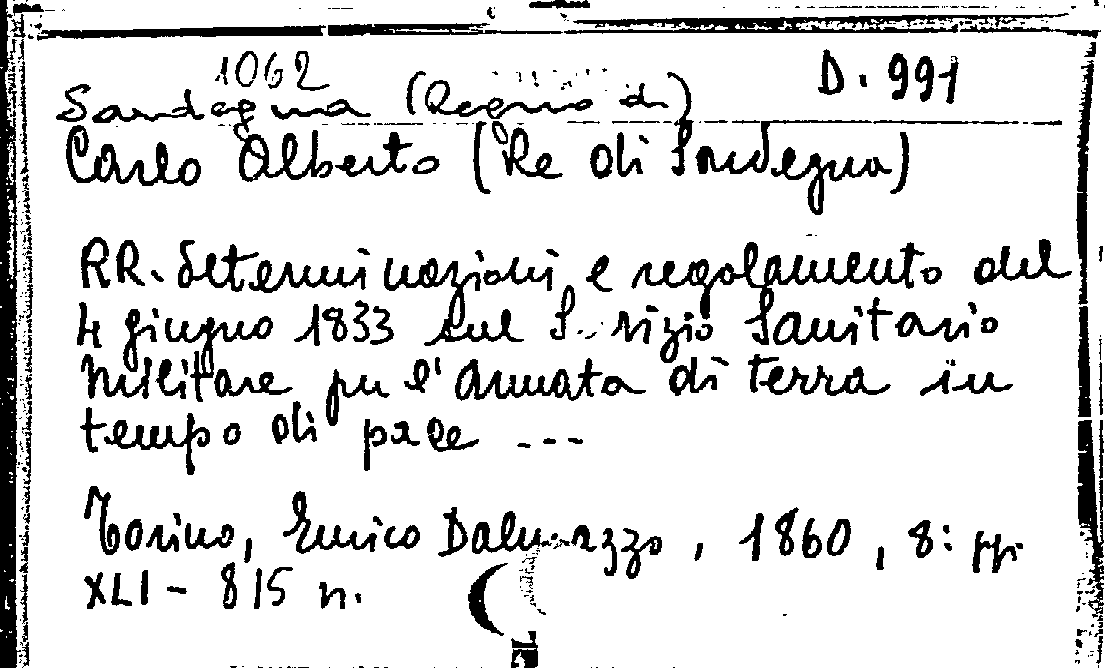 1062
D. 991
Sardegna (Regno di)
Carlo Alberto (Re di Sardegna)
RR. determinazioni e regolamento del
4 giugno 1833 sul Servizio Sanitario
Militare per l'Armata di terra in
tempo di pace ---
Torino, Enrico Dalmazzo, 1860, 8: pp.
XLI - 815 n.